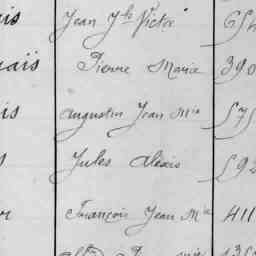 ais Jean Jh Victor 654
aïs Pierre Marie 390
is Augustin Jean Mie 575
s Jules Aléxis 592
er François Jean Mie 411